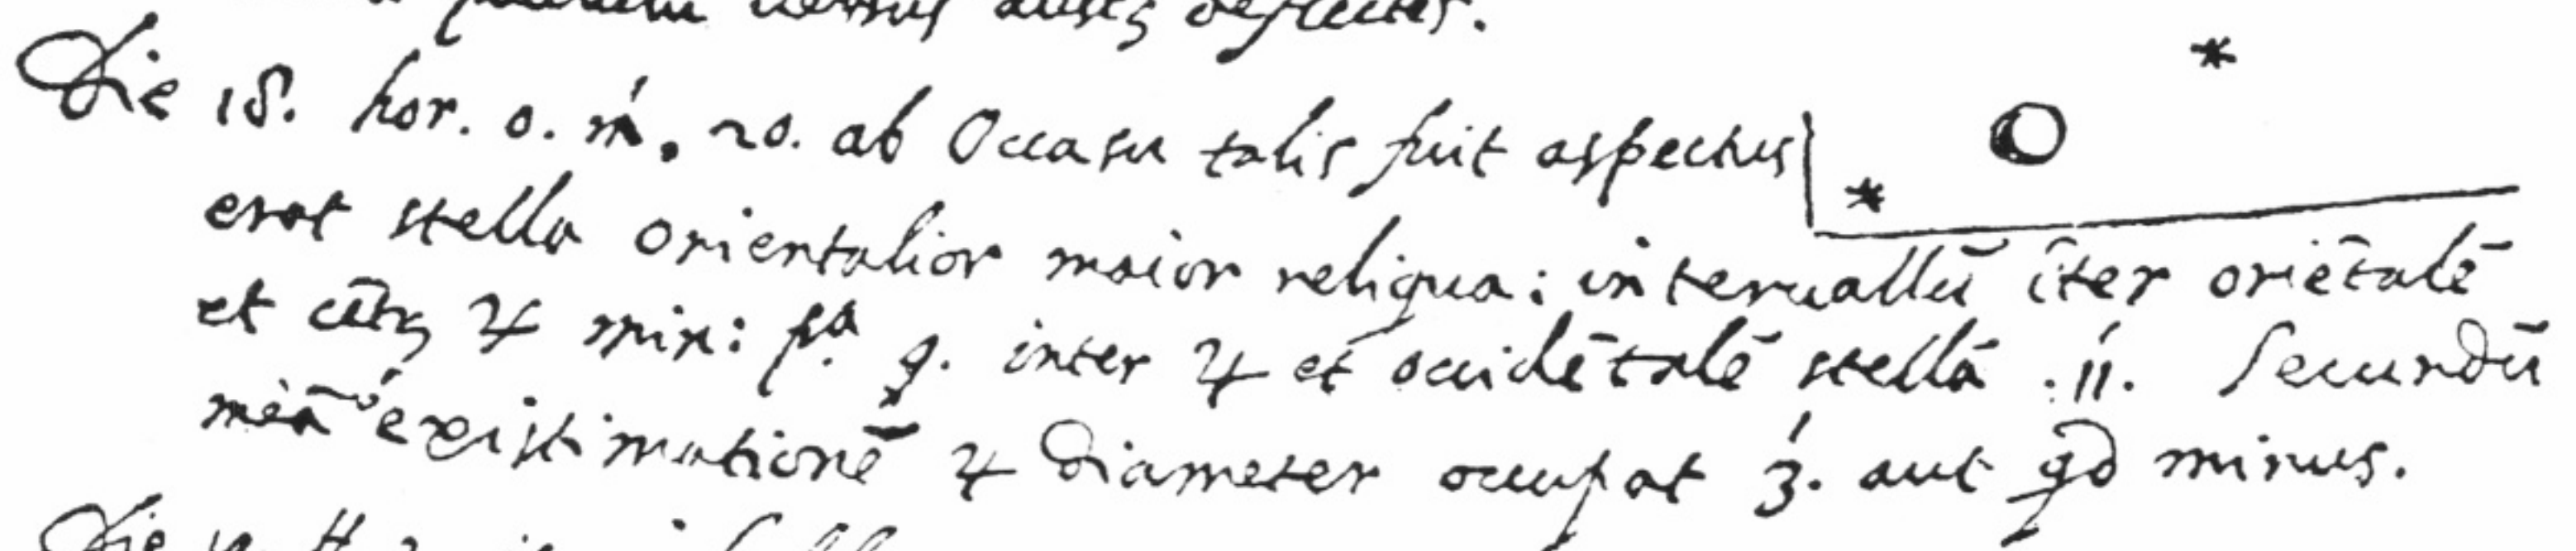 versus austr deflectit.
Die 18. hor. 0. m̄. 20. ab Occasu talis fuit aspectus
erat stella orientalior maior reliqua: interuallū īter oriētalē
et ♃ min: pª 9. inter ♃ et occidētalē stellā .11. Secundū
meā existimationē ♃ diameter occupat 3. aut qd minus.
Die